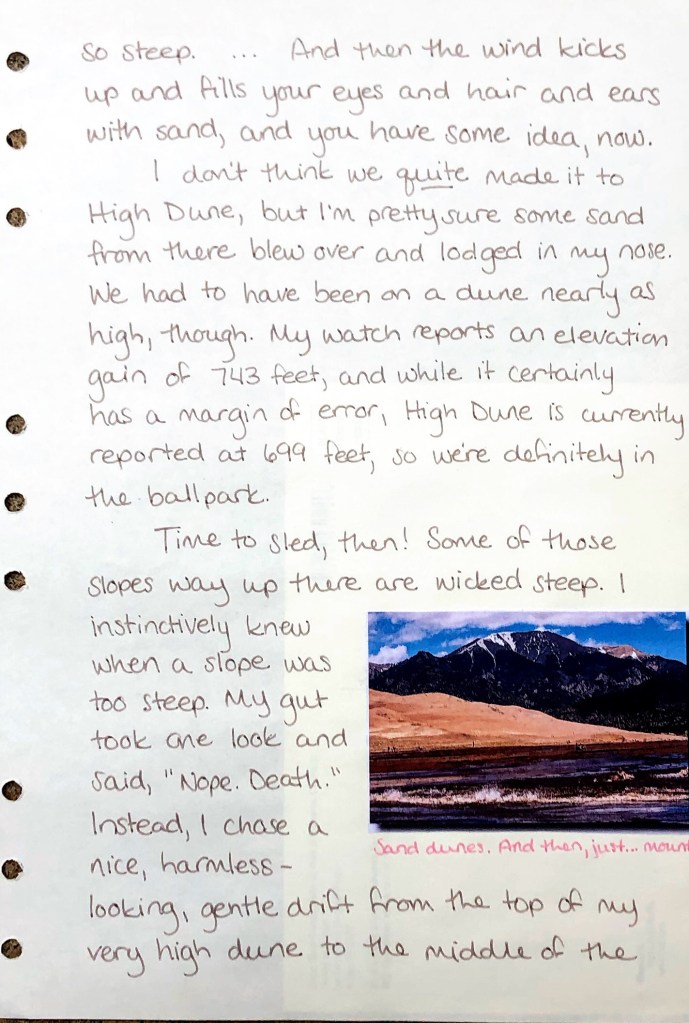 so steep. ... And then the wind kicks
up and fills your eyes and hair and ears
with sand, and you have some idea, now.
I don't think we quite made it to
High Dune, but I'm pretty sure some sand
from there blew over and lodged in my nose.
We had to have been on a dune nearly as
high, though. My watch reports an elevation
gain of 743 feet, and while it certainly
has a margin of error, High Dune is currently
reported at 699 feet, so we're definitely in
the ballpark.
Time to sled, then! Some of those
slopes way up there are wicked steep. I
instinctively knew
when a slope was
too steep. My gut
took one look and
said, "Nope. Death."
Instead, I chase a
nice, harmless-
looking, gentle drift from the top of my
very high dune to the middle of the
Sand dunes. And then, just... moun